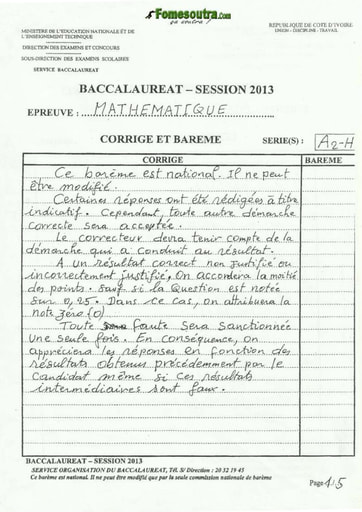 Fomesoutra.com
ça soutra !
MINISTERE DE L'EDUCATION NATIONALE ET DE
L'ENSEIGNEMENT TECHNIQUE
DIRECTION DES EXAMENS ET CONCOURS
SOUS-DIRECTION DES EXAMENS SCOLAIRES
SERVICE BACCALAUREAT
REPUBLIQUE DE COTE D'IVOIRE
UNION - DISCIPLINE - TRAVAIL
BACCALAUREAT – SESSION 2013
EPREUVE : MATHEMATIQUE
CORRIGE ET BAREME
SERIE(S) : A2-H
CORRIGE
BAREME
Ce barème est national. Il ne peut
être modifié.
Certaines réponses ont été rédigées à titre
indicatif. Cependant, toute autre démarche
correcte sera acceptée.
Le correcteur devra tenir compte de la
démarche qui a conduit au résultat.
A un résultat correct non justifié ou
incorrectement justifié, on accordera la moitié
des points. Sauf si la question est notée
sur 0,25. Dans ce cas, on attribuera la
note zéro (0)
Toute faute sera sanctionnée
une seule fois. En conséquence, on
appréciera les réponses en fonction des
résultats obtenus précédemment par le
candidat même si ces résultats
intermédiaires sont faux.
BACCALAUREAT – SESSION 2013
SERVICE ORGANISATION DU BACCALAUREAT, Tél. S/ Direction : 20 32 19 45
Ce barème est national. Il ne peut être modifié que par la seule commission nationale de barème
Page 1/5